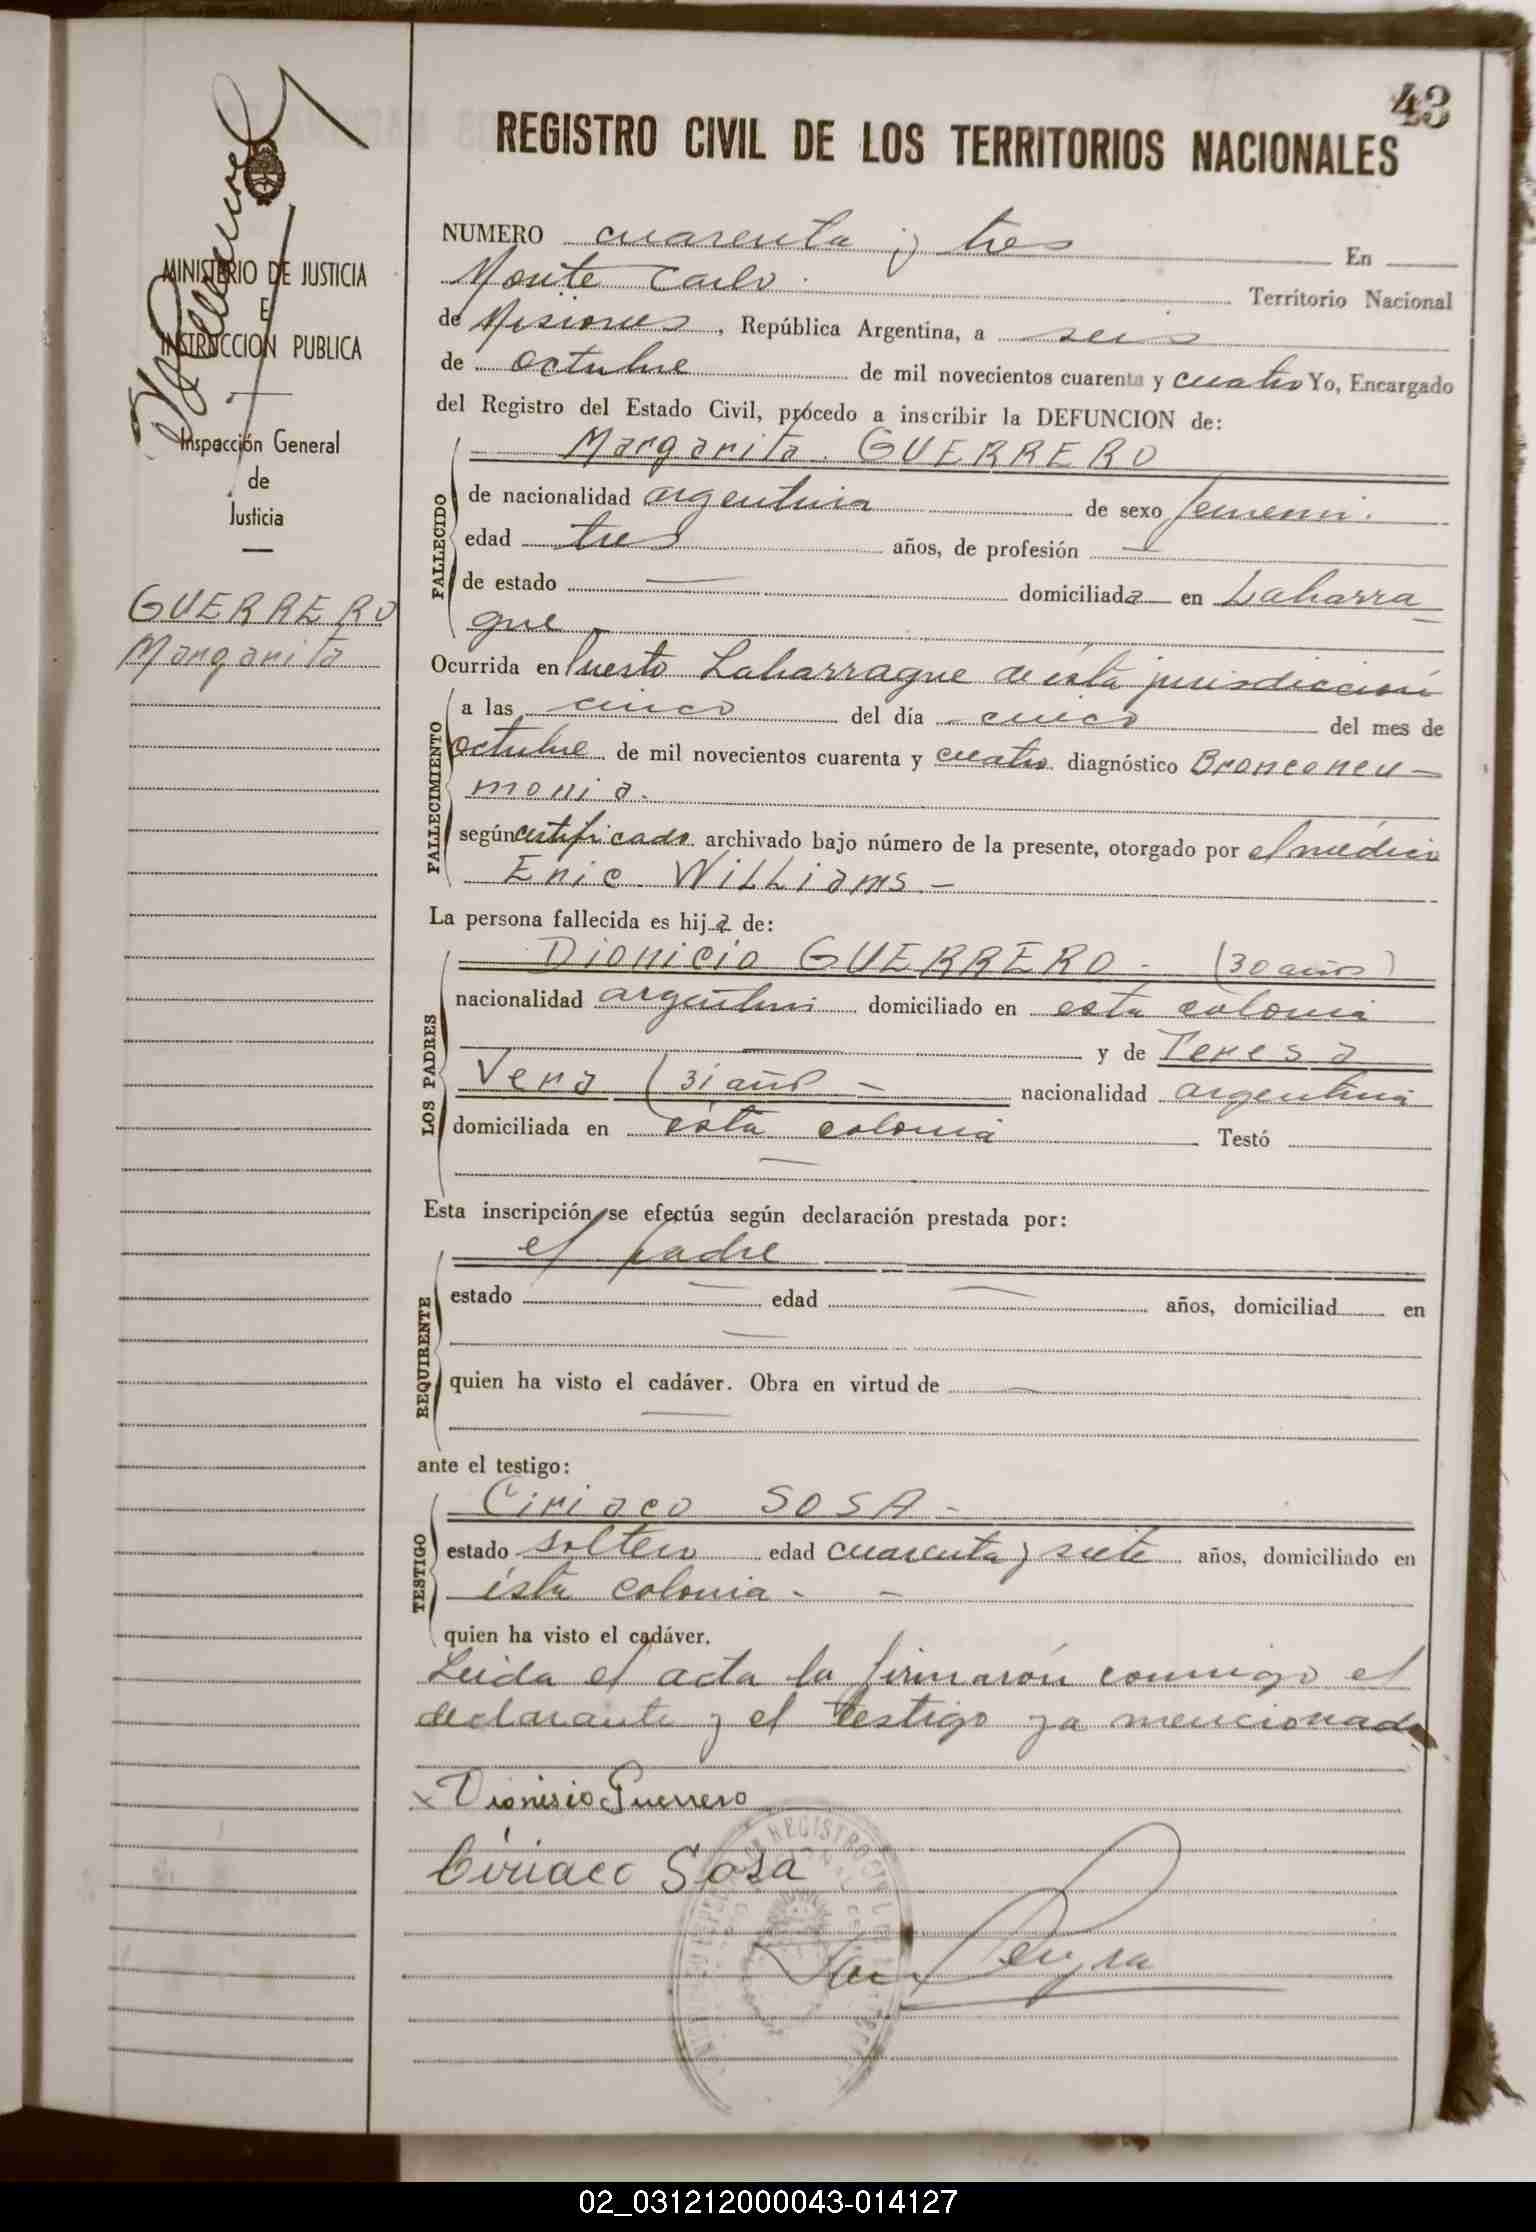 43
REGISTRO CIVIL DE LOS TERRITORIOS NACIONALES
MINISTERIO DE JUSTICIA
E
INSTRUCCION PUBLICA
Inspección General
de
Justicia
GUERRERO
Margarita
NUMERO cuarenta y tres En
Monte Carlo. Territorio Nacional
de Misiones, República Argentina, a seis
de octubre de mil novecientos cuarenta y cuatro Yo, Encargado
del Registro del Estado Civil, procedo a inscribir la DEFUNCION de:
FALLECIDO
Margarita. GUERRERO
de nacionalidad argentina de sexo femeni.
edad tres años, de profesión —
de estado — domiciliada en Laharra
gue
Ocurrida en Puerto Laharrague de ésta jurisdicción
FALLECIMIENTO
a las cinco del día cinco del mes de
octubre de mil novecientos cuarenta y cuatro diagnóstico Bronconeu-
monia.
según certificado archivado bajo número de la presente, otorgado por el médico
Eric Williams -
La persona fallecida es hija de:
LOS PADRES
Dionicio GUERRERO - (30 años)
nacionalidad argentino domiciliado en esta colonia
y de Teresa
Vera (31 años - nacionalidad argentina
domiciliada en ésta colonia Testó
—
Esta inscripción se efectúa según declaración prestada por:
REQUIRENTE
el padre
estado — edad — años, domiciliad en
—
quien ha visto el cadáver. Obra en virtud de —
—
ante el testigo:
TESTIGO
Ciriaco SOSA -
estado soltero edad cuarenta y siete años, domiciliado en
ésta colonia - -
quien ha visto el cadáver.
Leida el acta la firmarón conmigo el
declarante y el testigo ya mencionado
x Dionisio Guerrero
Ciriaco Sosa
02_031212000043-014127